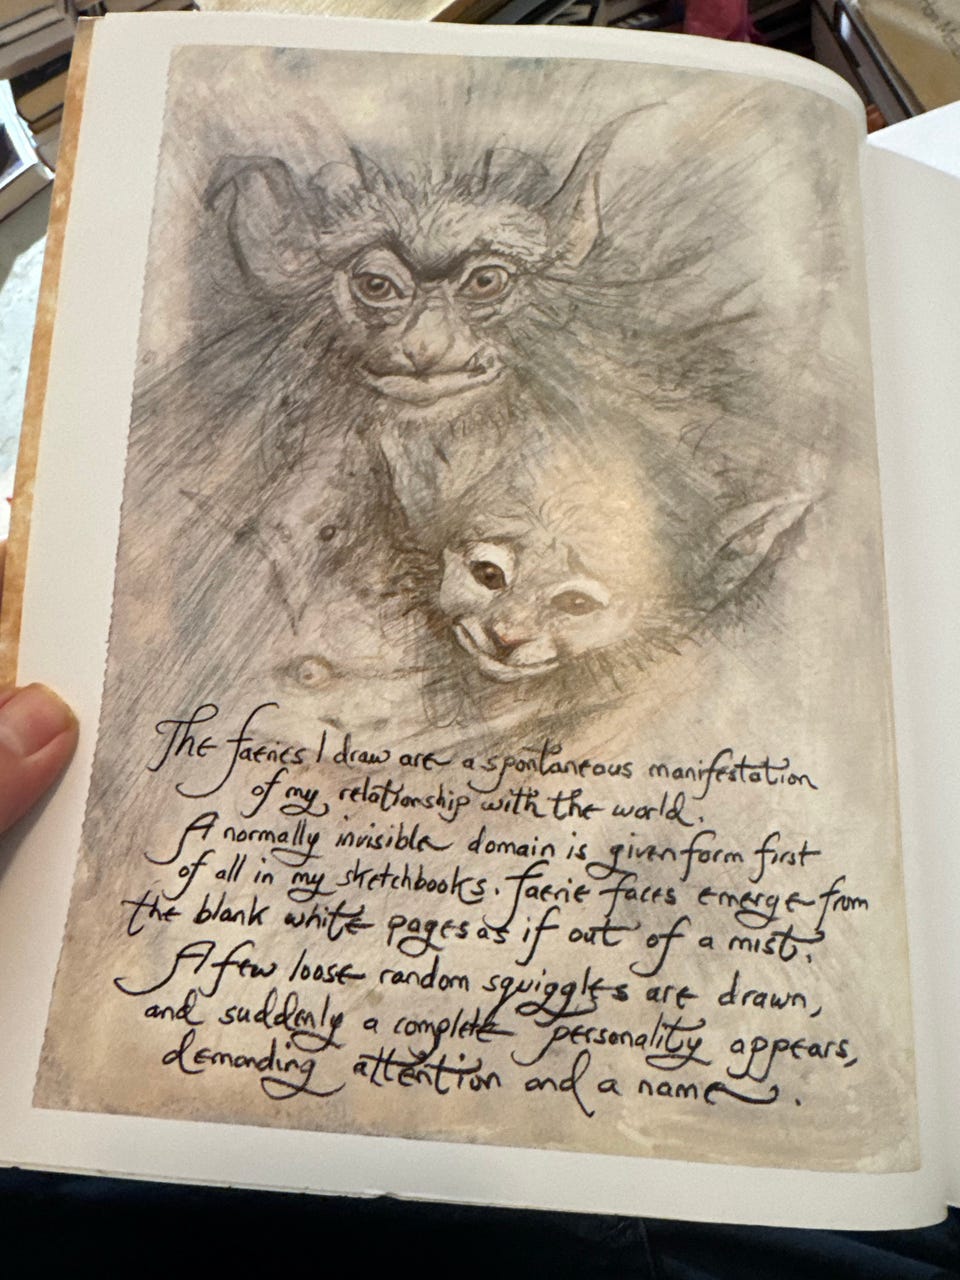 The faeries I draw are a spontaneous manifestation
of my relationship with the world.
A normally invisible domain is given form first
of all in my sketchbooks. Faerie faces emerge from
the blank white pages as if out of a mist.
A few loose random squiggles are drawn,
and suddenly a complete personality appears,
demanding attention and a name.